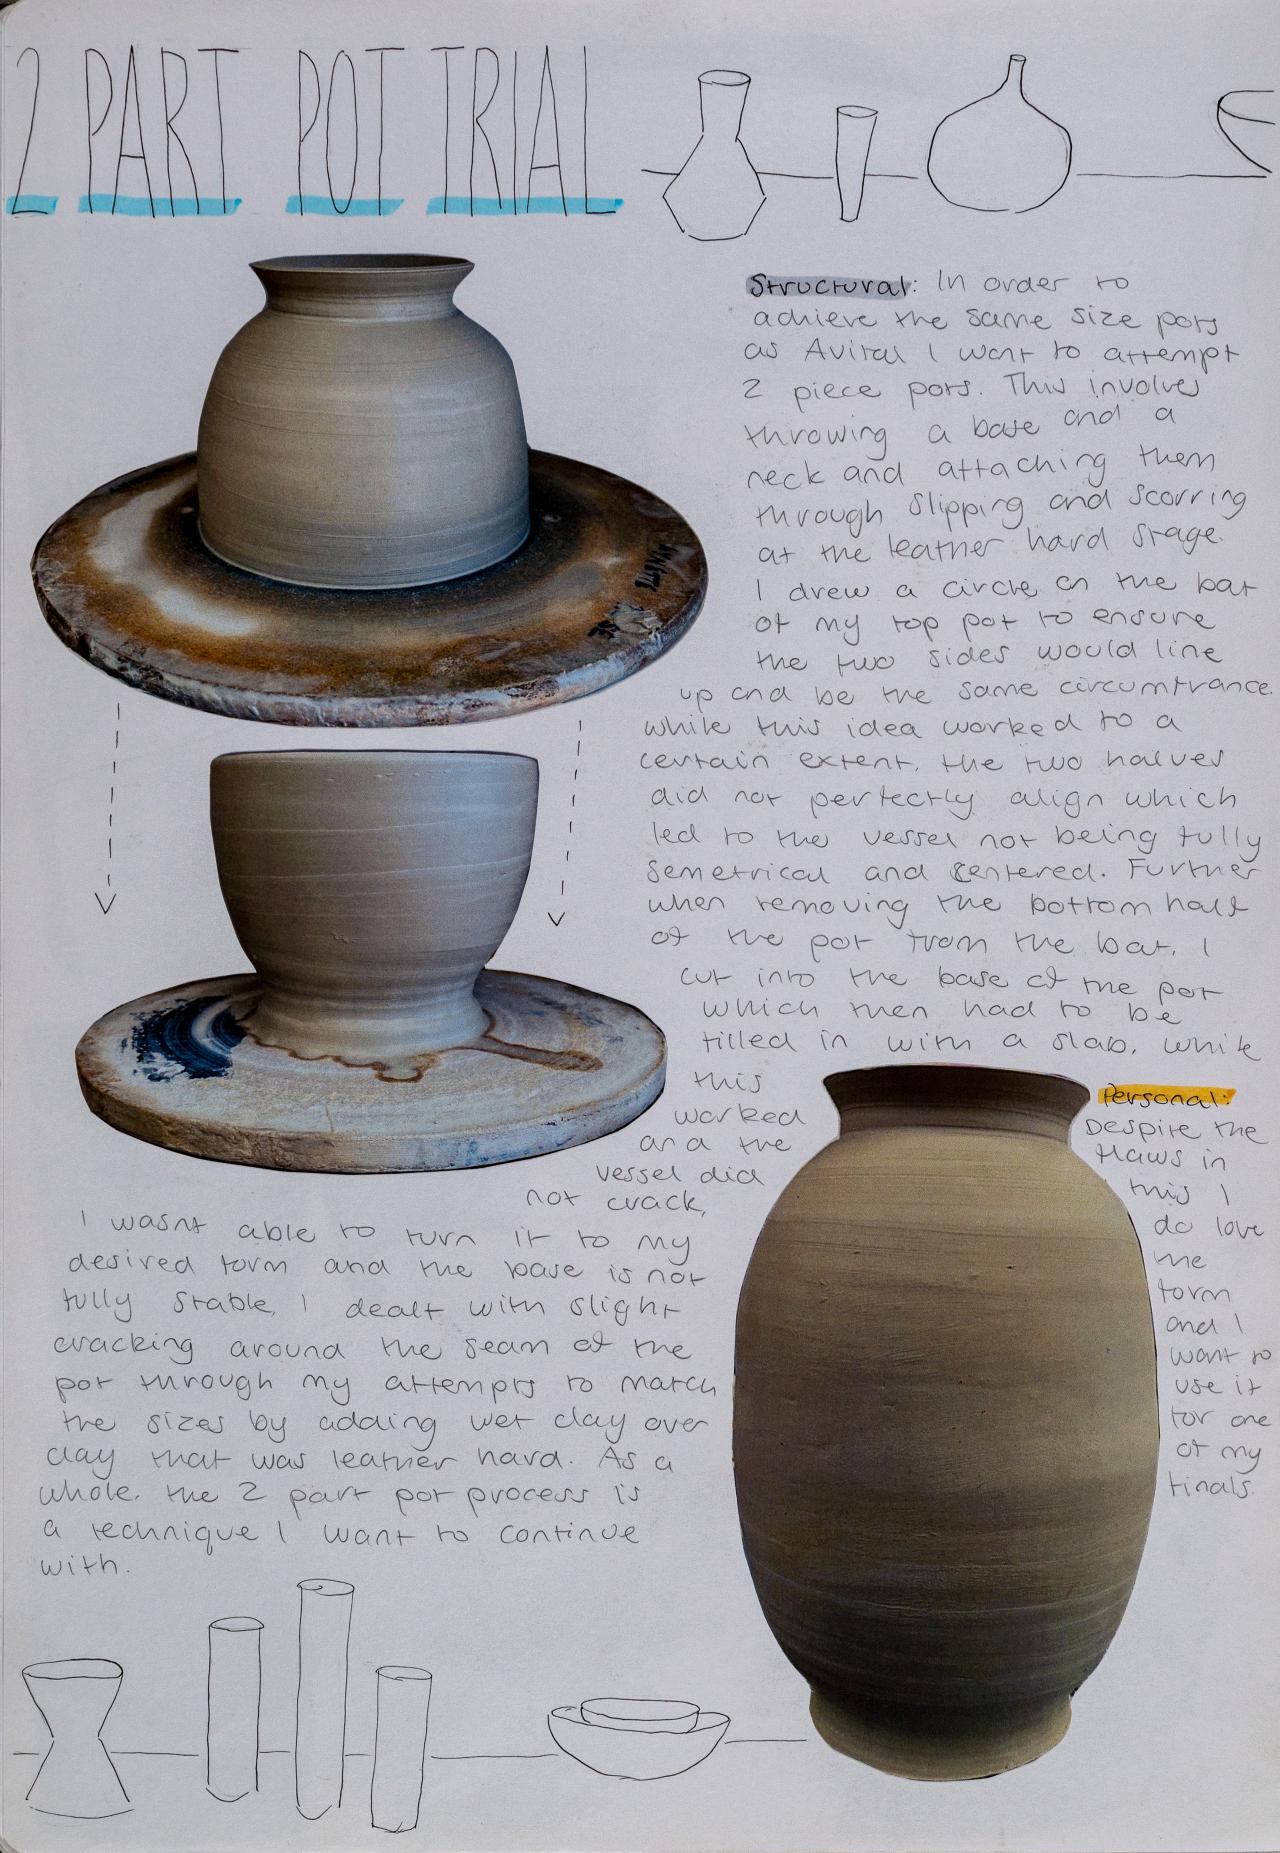 2 PART POT TRIAL
Structural: In order to
achieve the same size pots
as Avital I want to attempt
2 piece pots. This involves
throwing a base and a
neck and attaching them
through slipping and scorring
at the leather hard stage.
I drew a circle on the bat
of my top pot to ensure
the two sides would line
up and be the same circumfrance.
while this idea worked to a
certain extent, the two halves
did not perfectly align which
led to the vessel not being fully
semetrical and centered. Further
when removing the bottom half
of the pot from the bat, I
cut into the base of the pot
which then had to be
filled in with a slab, while
this
worked
and the
vessel did
not crack,
I wasnt able to turn it to my
desired form and the base is not
fully stable, I dealt with slight
cracking around the seam of the
pot through my attempts to match
the sizes by adding wet clay over
clay that was leather hard. As a
whole, the 2 part pot process is
a technique I want to continue
with.
Personal:
Despite the
flaws in
this I
do love
the
form
and I
want to
use it
for one
of my
finals.